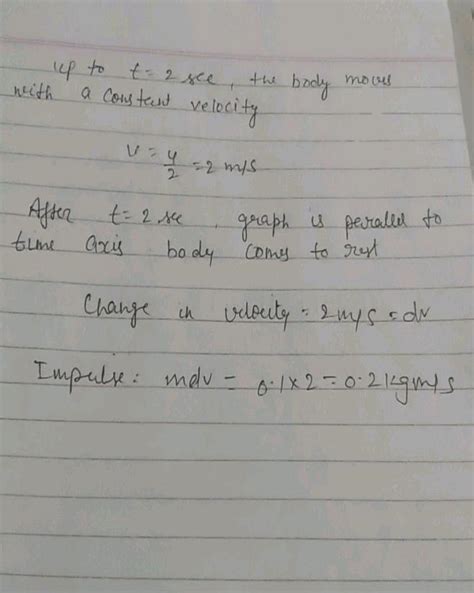 up to t = 2 sec, the body moves
with a constant velocity
v = 4/2 = 2 m/s
After t = 2 sec, graph is parallel to
time axis body comes to rest
Change in velocity = 2 m/s = dv
Impulse: mdv = 0.1 × 2 = 0.2 kgm/s